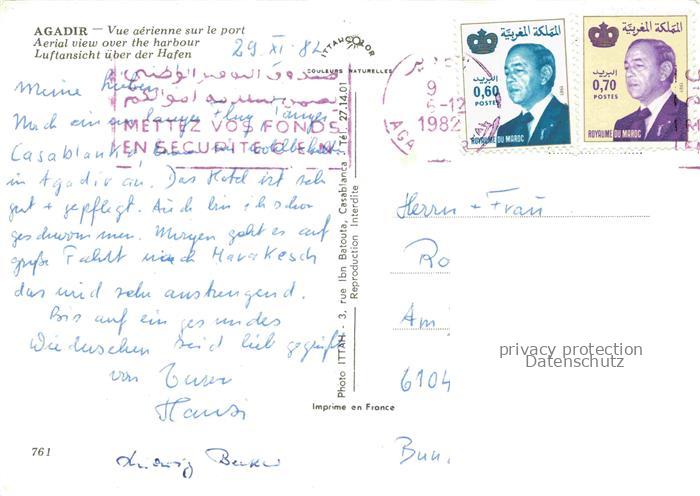 AGADIR — Vue aérienne sur le port
Aerial view over the harbour
Luftansicht über der Hafen
29. XI. 82
ITTAH COLOR
COULEURS NATURELLES
Meine lieben
صندوق التوفير الوطني
METTEZ VOS FONDS
EN SECURITE
Nach ein
Casablanka
in Agadir an. Das Hotel ist sehr
gut + gepflegt. Auch bin ich schon
geschwommen. Morgen geht es auf
große Fahrt nach Marakesch
das wird sehr anstrengend.
Bis auf ein gesundes
Wiedersehen seid lieb gegrüßt
von Eurer
Hansi
Ludwig
761
Photo ITTAH - 3, rue Ibn Batouta, Casablanca / Tél. 27.14.01
Reproduction Interdite
Imprime en France
9
6-12
1982
AGA
المملكة المغربية
البريد
0,60
POSTES
1981
ROYAUME DU MAROC
المملكة المغربية
البريد
0,70
POSTES
1981
ROYAUME DU MAROC
Herrn + Frau
Ro
Am
privacy protection
Datenschutz
6104
Bun